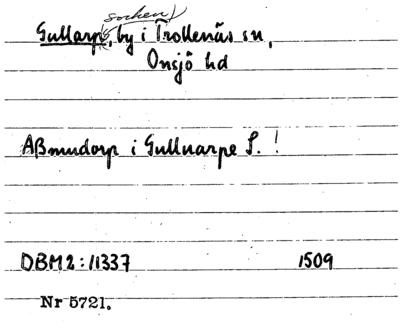 socken)
Gullarp, by i Trollenäs sn,
Onsjö hd
ABmudorp i Gullnarpe S. !
DBM2:11337 1509
Nr 5721.